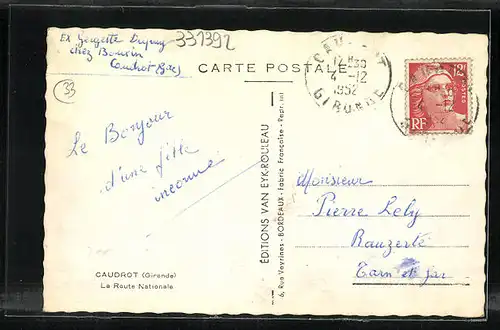 Ex Georgette Dupuy
chez Bouvin
Caudrot Gde
331392
33
CARTE POSTALE
CAUDROT
12H30
4-12
1952
GIRONDE
12F
POSTES
RF
Le Bonjour
d'une fille
inconnue
Monsieur
Pierre Lely
Rauzerte
Tarn et gar
ÉDITIONS VAN EYK-ROULEAU
6, Rue Veyrines - BORDEAUX - Fabric. Française - Repr. int
CAUDROT (Gironde)
La Route Nationale